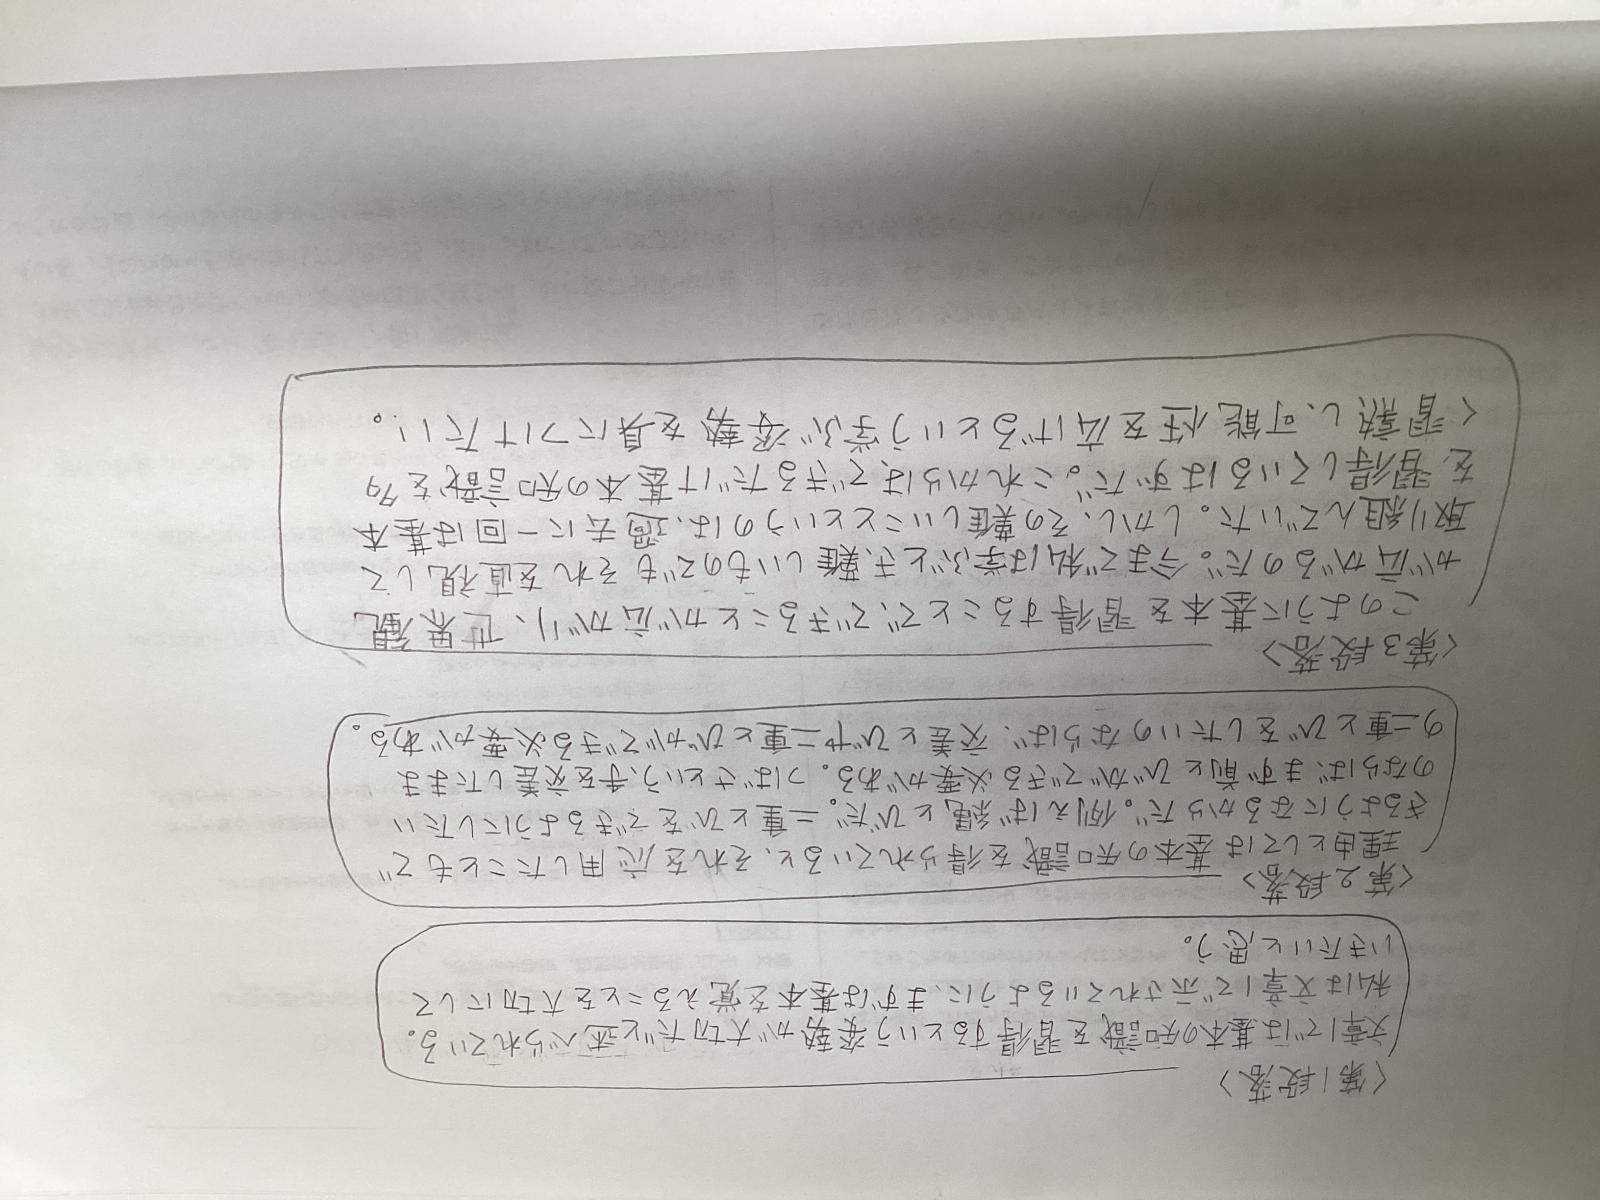 〈第1段落〉
文章1では基本の知識を習得するという姿勢が大切だと述べられている。
私は文章1で示されているように、まずは基本を覚えることを大切にして
いきたいと思う。
〈第2段落〉
理由としては基本の知識を得られていると、それを応用したこともで
きるようになるからだ。例えば縄とびだ。二重とびをできるようにしたい
のならば、まず前とびができる必要がある。つばさという、手を交差したまま
の二重とびをしたいのならば、交差とびや二重とびができる必要がある。
〈第3段落〉
このように基本を習得することで、できることが広がり、世界観
が広がるのだ。今まで私は学ぶとき、難しいものでもそれを直視して
取り組んでいた。しかし、その難しいことというのは、過去に一回は基本
を習得しているはずだ。これからは、できるだけ基本の知識を多
く習熟し、可能性を広げるという学ぶ姿勢を身につけたい。